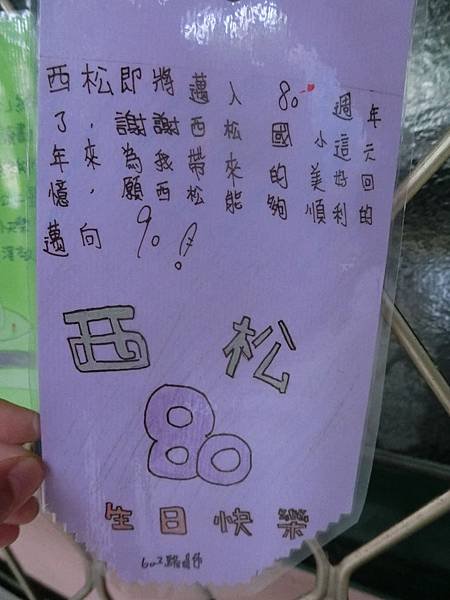 西松即將邁入80週年
了,謝謝西松國小這六
年來,為我帶來的美好回
憶,願西松能夠順利的
邁向90!
西松
80
生日快樂
602